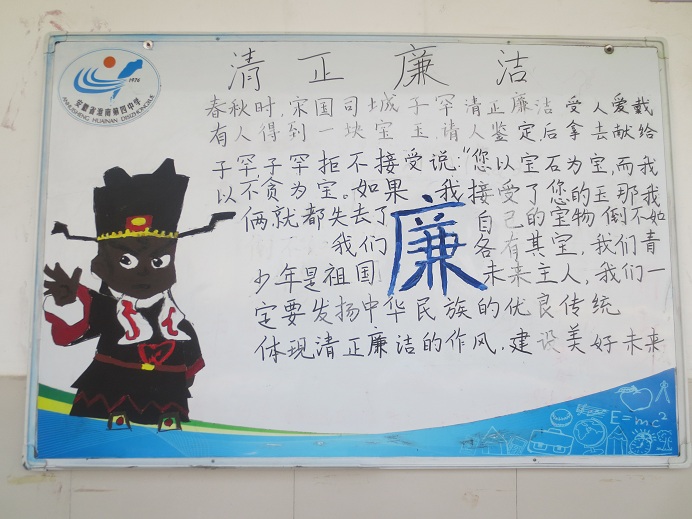 清正廉洁
春秋时,宋国司城子罕清正廉洁,受人爱戴
有人得到一块宝玉,请人鉴定后拿去献给
子罕,子罕拒不接受说:“您以宝石为宝,而我
以不贪为宝。如果 我接受了您的玉那我
俩就都失去了 自己的宝物 倒不如
我们 各有其宝,我们青
少年是祖国 未来主人,我们一
定要发扬中华民族的优良传统
体现清正廉洁的作风,建设美好未来
廉
安徽省淮南第四中学
ANHUISHENG HUAINAN DISIZHONGXUE
1976
E=mc²